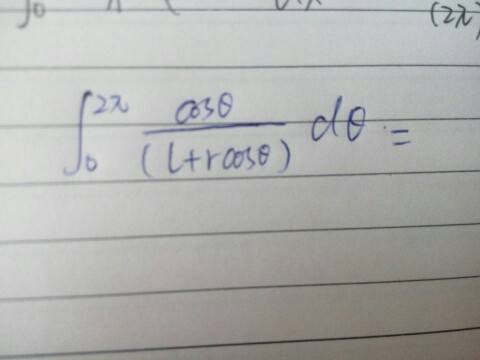 (2π)
∫₀^{2π} cosθ/(l+rcosθ) dθ =